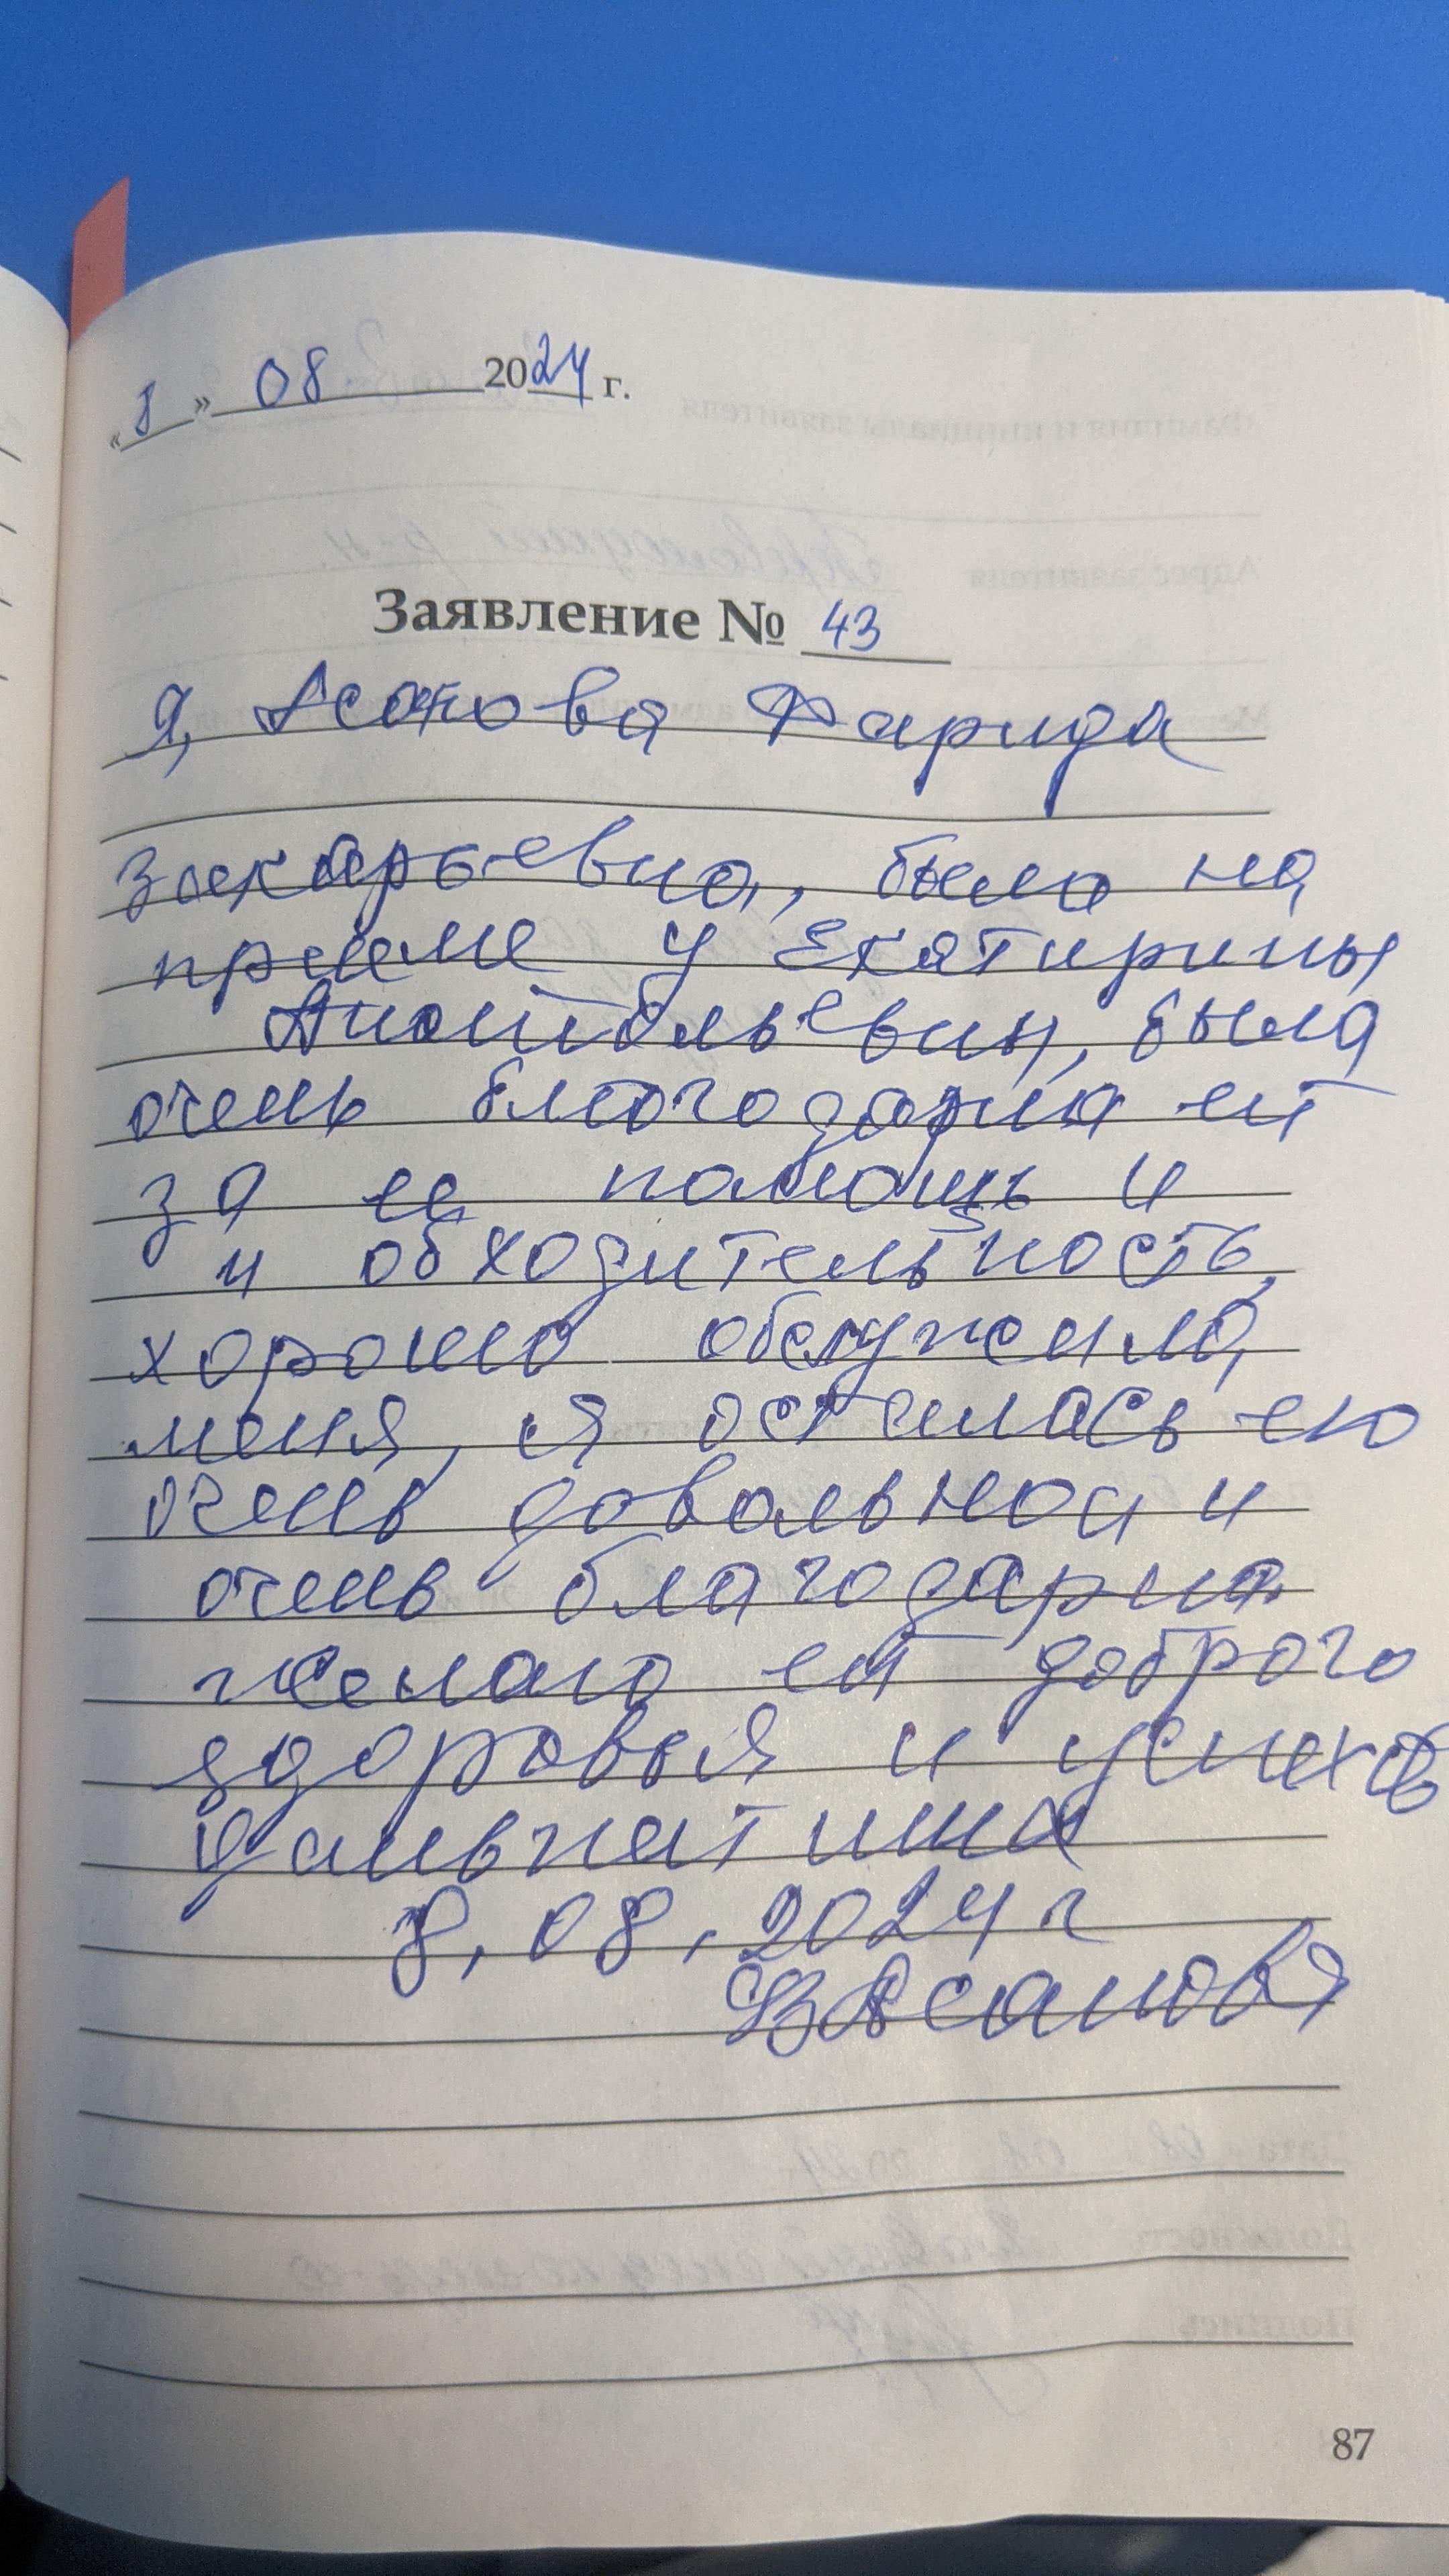 «8» 08 2024 г.
Заявление № 43
Я, Асанова Фарида
Закарьевна, была на
приеме у Екатирины
Анатольевны, была
очень благодарна ей
за ее помощь и
и обходительность,
хорошо обслужила,
меня, я осталась ею
очень довольной и
очень благодарна
желаю ей доброго
здоровья и успехов
8, 08, 2024 г
Асанова
87